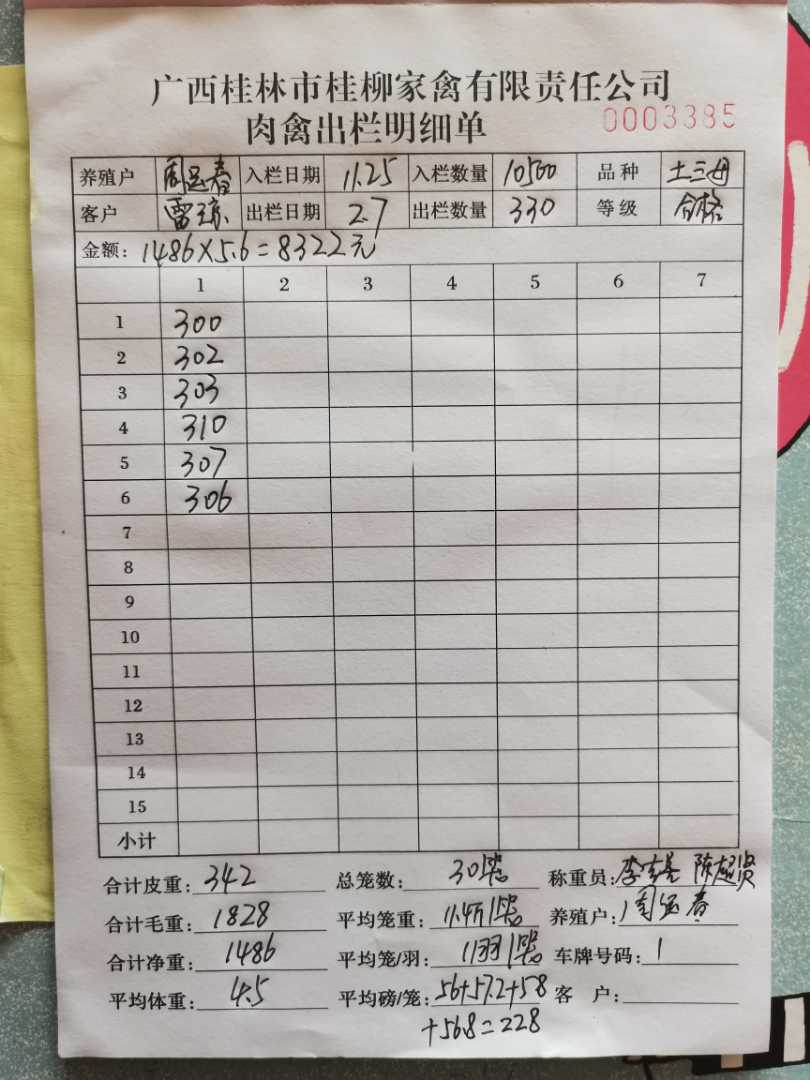 广西桂林市桂柳家禽有限责任公司
肉禽出栏明细单 0003385
养殖户 周远春 入栏日期 11.25 入栏数量 10500 品种 土三母
客户 雷琼 出栏日期 2.7 出栏数量 330 等级 合格
金额: 1486×5.6=8322元
1 2 3 4 5 6 7
1 300
2 302
3 303
4 310
5 307
6 306
7
8
9
10
11
12
13
14
15
小计
合计皮重: 342 总笼数: 30笼 称重员: 陈超贤
合计毛重: 1828 平均笼重: 11.4斤/笼 养殖户: 周远春
合计净重: 1486 平均笼/羽: 11羽/笼 车牌号码: 1
平均体重: 4.5 平均磅/笼: 56+57.2+58 客 户:
+56.8=228